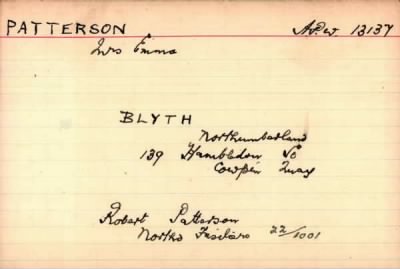 PATTERSON AP.W. 13137
Mrs Emma
BLYTH
Northumberland
139 Hambledon St
Cowpen Quay
Robert Patterson
Northd Fusiliers 22/1001